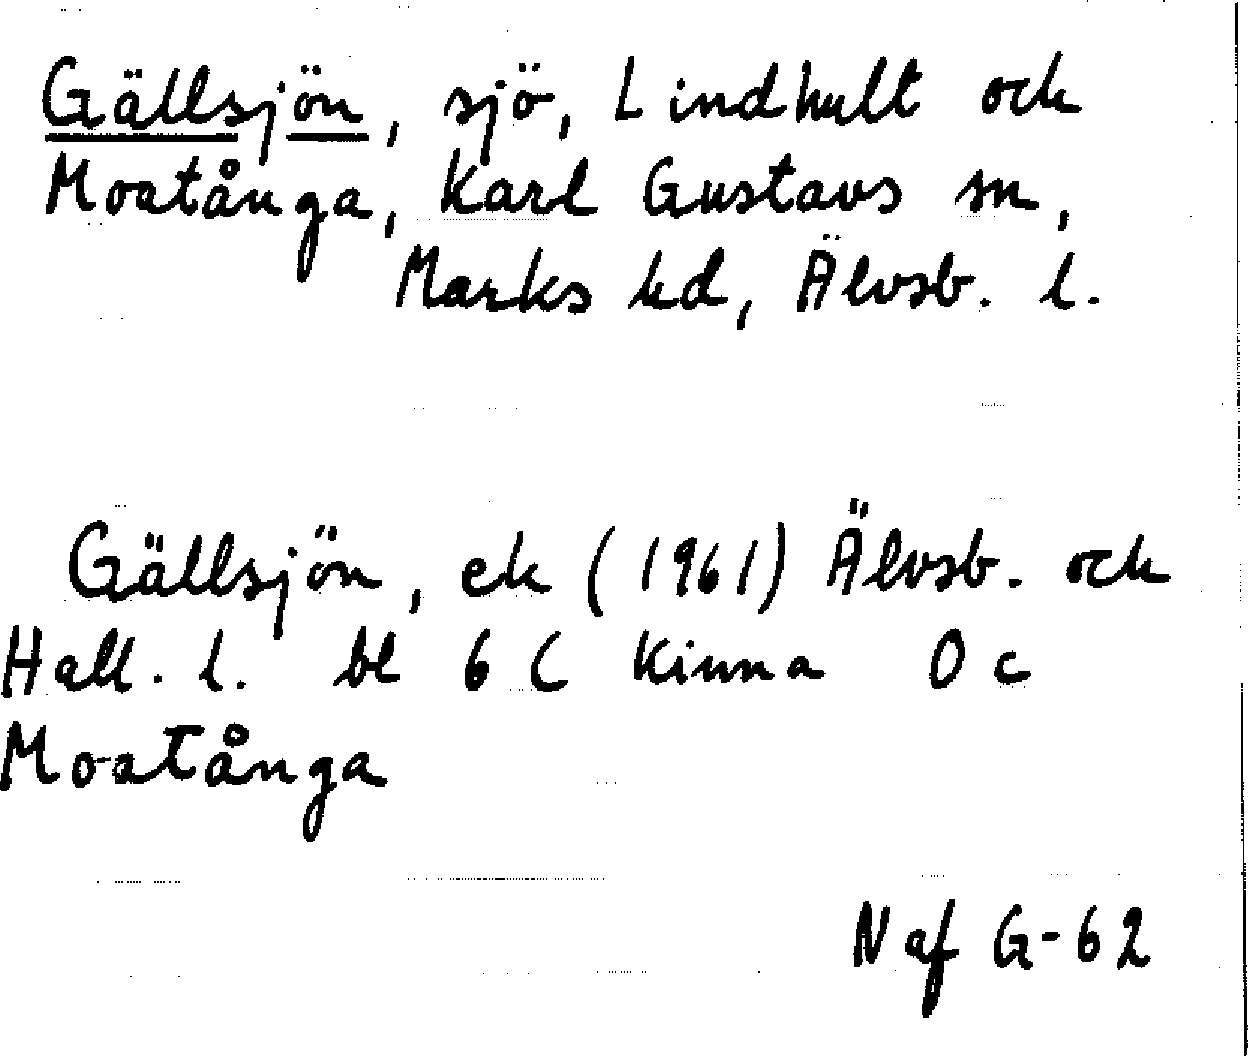 Gällsjön, sjö, Lindhult och
Moatånga, Karl Gustavs sn,
Marks hd, Älvsb. l.
Gällsjön, ek (1961) Älvsb. och
Hall. l. bl 6 C Kinna 0 c
Moatånga
Naf G-62